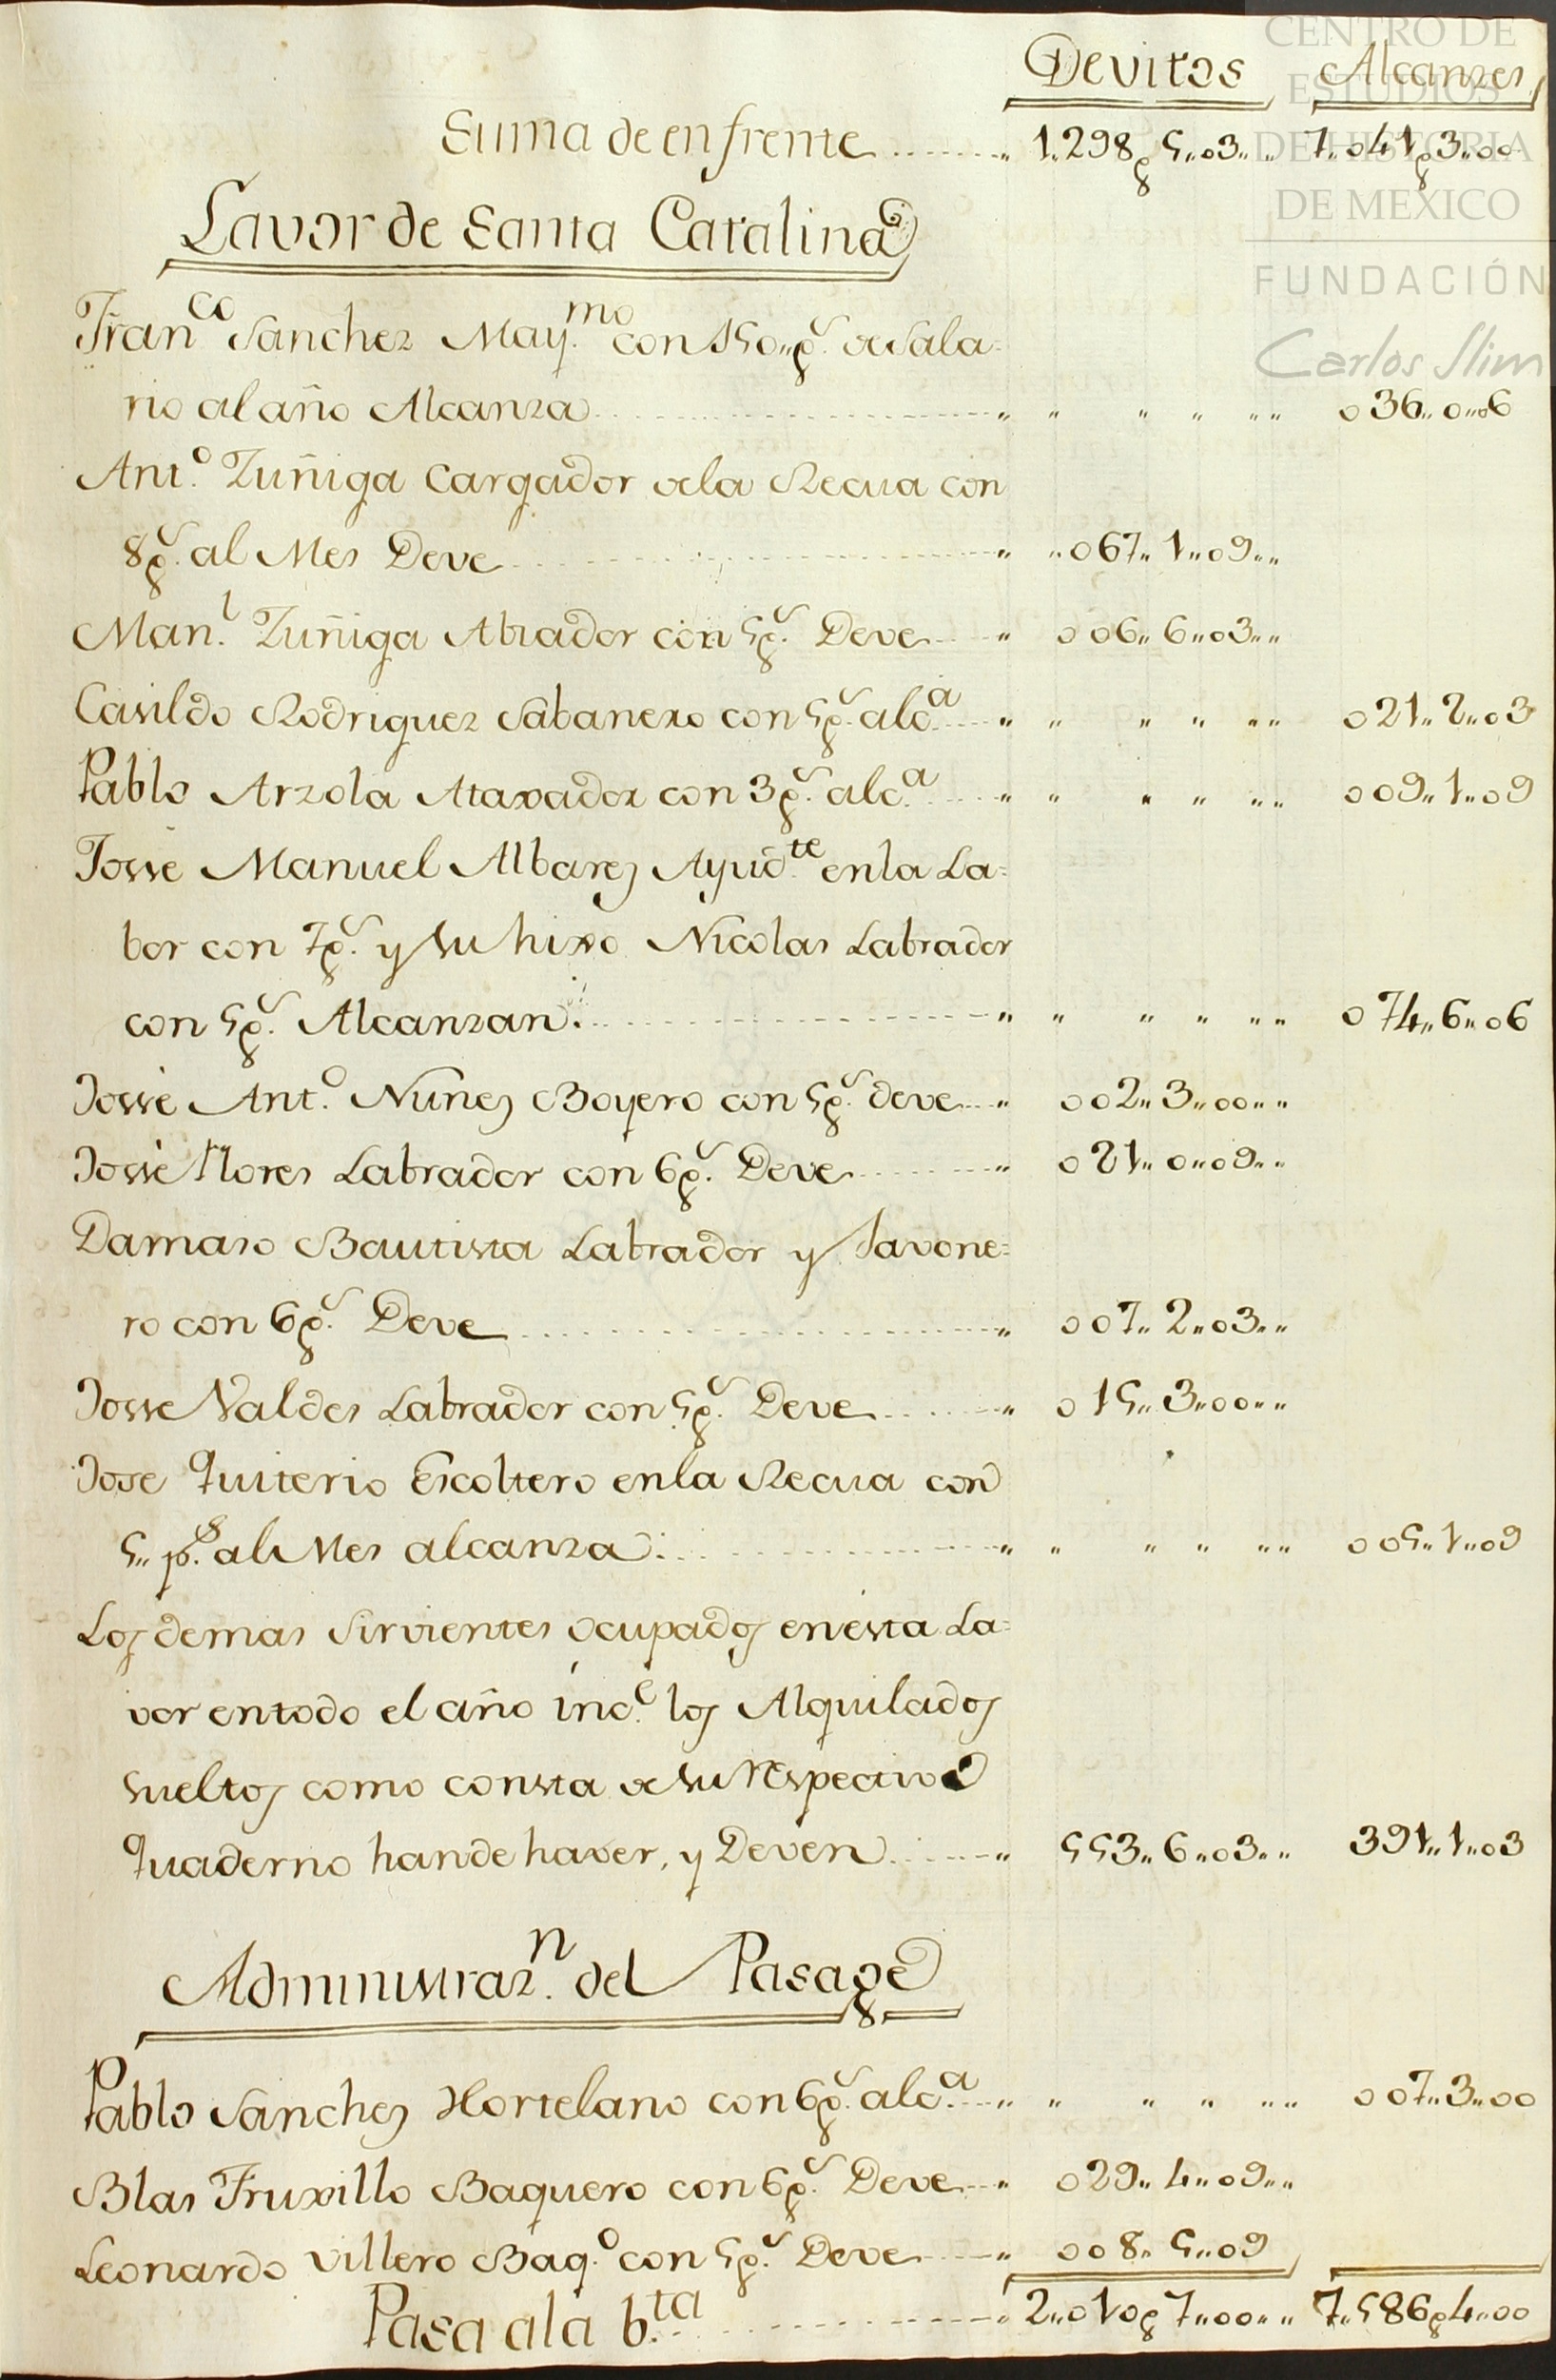 CENTRO DE
ESTUDIOS
DE HISTORIA
DE MEXICO
FUNDACIÓN
Carlos Slim
Devitos Alcanzes
Suma de enfrente 1.298p 5..03.. 7..041p3..00
Lavor de Santa Catalina
Franco Sanchez May.mo con 150..ps. de Sala=
rio al año Alcanza 036..0..06
Ant.o Zuñiga Cargador dela Recua con
8ps. al Mes Deve 067..1..09..
Man.l Zuñiga Atrador con 5ps. Deve 006..6..03..
Casildo Rodriguez Sabanero con 5ps. alc.a 021..2..03
Pablo Arzola Ataxador con 3ps. alc.a 009..1..09
Josse Manuel Albarez Ayud.te enla La=
bor con 7ps. y su hixo Nicolas Labrador
con 5ps. Alcanzan 074..6..06
Josse Ant.o Nuñez Boyero con 5ps. deve 002..3..00..
Josse Flores Labrador con 6ps. Deve 021..0..09..
Damaso Bautista Labrador y Savone=
ro con 6ps. Deve 007..2..03..
Josse Valdes Labrador con 5ps. Deve 015..3..00..
Jose Quiterio Escoltero enla Recua con
5.. ps. al Mes alcanza 005..1..09
Los demas Sirvientes ocupados enésta La=
vor entodo el año inc.e los Alquilados
sueltos como consta de su respectivo
Quaderno hande haver, y Deven 553..6..03.. 391..1..03
Administraz.n del Pasage
Pablo Sanchez Hortelano con 6ps. alc.a 007..3..00
Blas Truxillo Baquero con 6ps. Deve 029..4..09..
Leonardo Villero Baq.o con 5ps. Deve 008..5..09
Pasa ala b.ta 2..010p7..00.. 7..586p4..00